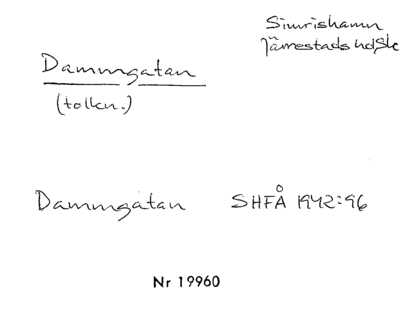 Simrishamn
Järrestads hd, Sk
Dammgatan
(tolkn.)
Dammgatan SHFÅ 1942:96
Nr 19960